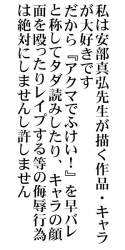 私は安部真弘先生が描く作品・キャラ
が大好きです
だから『アクマでふけい！』を早バレ
と称してタダ読みしたり、キャラの顔
面を殴ったりレイプする等の侮辱行為
は絶対にしませんし許しません